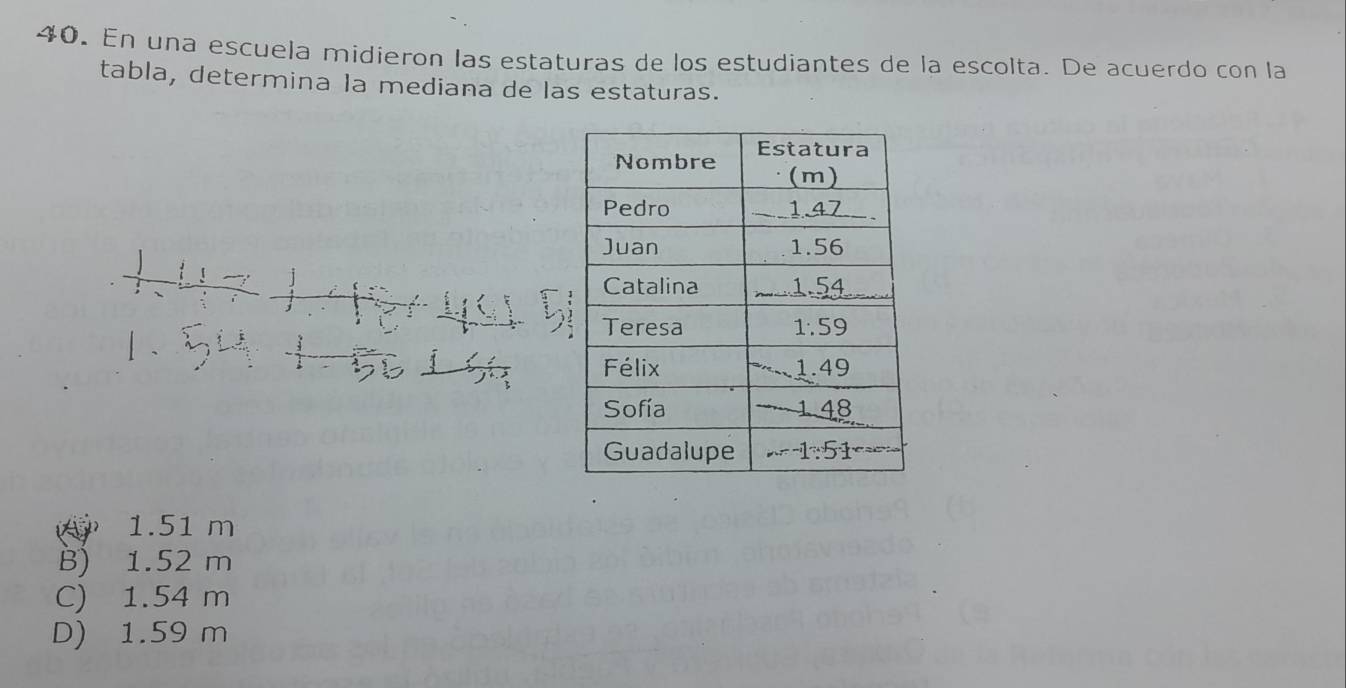 40. En una escuela midieron las estaturas de los estudiantes de la escolta. De acuerdo con la
tabla, determina la mediana de las estaturas.
Nombre Estatura (m)
Pedro 1.47
Juan 1.56
Catalina 1.54
Teresa 1.59
Félix 1.49
Sofía 1.48
Guadalupe 1.51
1.47 1.48 1.49 1.51
1.54 1.56 1.59
A) 1.51 m
B) 1.52 m
C) 1.54 m
D) 1.59 m